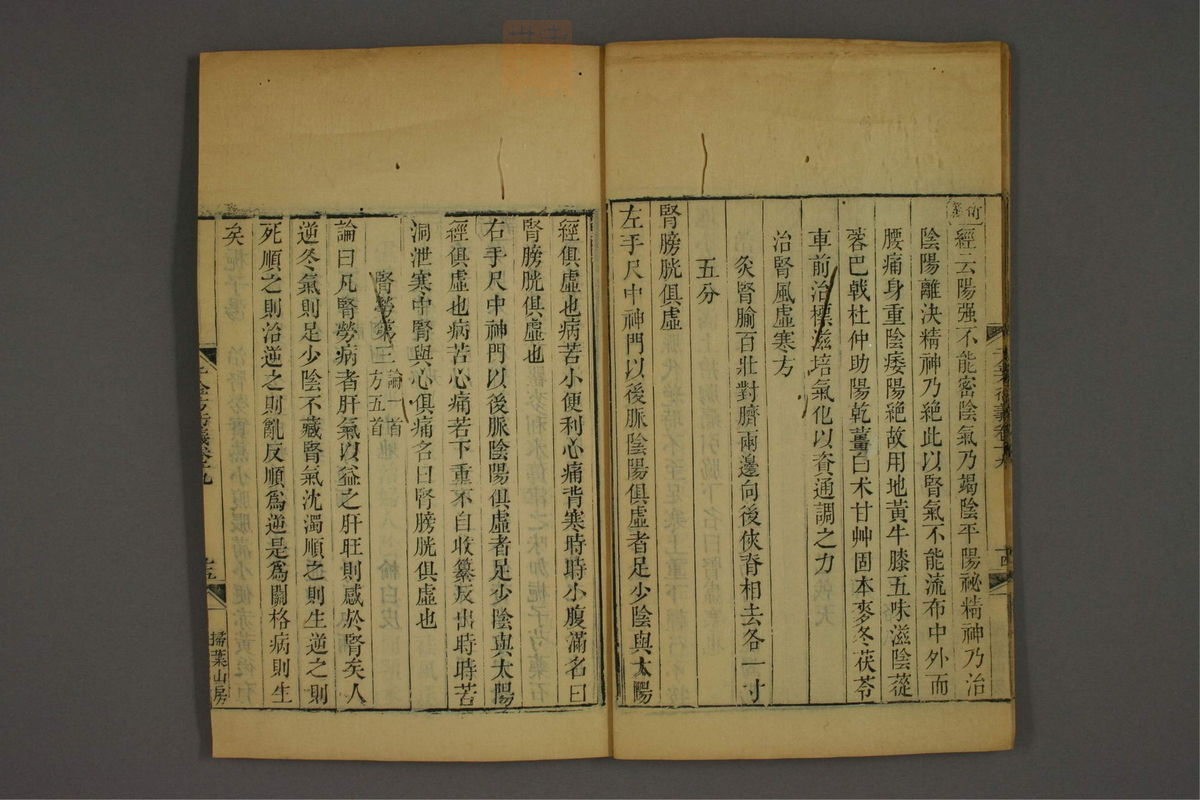 衍義經云陽强不能密陰氣乃竭陰平陽祕精神乃治
陰陽離決精神乃絶此以腎氣不能流布中外而
腰痛身重陰痿陽絶故用地黃牛膝五味滋陰蓯
蓉巴戟杜仲助陽乾薑白朮甘艸固本麥冬茯苓
車前治標滋培氣化以資通調之力
治腎風虛寒方
灸腎腧百壯對臍兩邊向後俠脊相去各一寸
五分
腎膀胱俱虛
左手尺中神門以後脈陰陽俱虛者足少陰與太陽
經俱虛也病苦小便利心痛背寒時時小腹滿名曰
腎膀胱俱虛也
右手尺中神門以後脈陰陽俱虛者足少陰與太陽
經俱虛也病苦心痛若下重不自收纂反出時時苦
洞泄寒中腎與心俱痛名曰腎膀胱俱虛也
腎勞第三
論一首
方五首
論曰凡腎勞病者肝氣以益之肝旺則感於腎矣人
逆冬氣則足少陰不藏腎氣沈濁順之則生逆之則
死順之則治逆之則亂反順爲逆是爲關格病則生
矣
千金方衍義卷十九
十五
掃葉山房